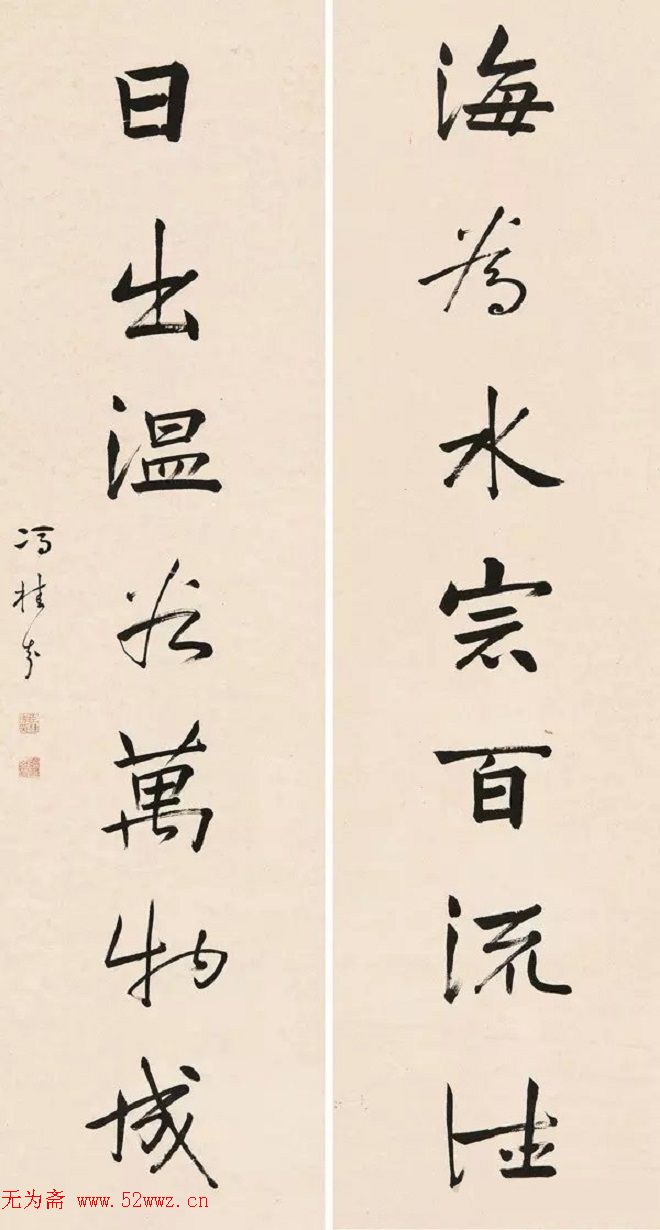 海為水宗百流
日出温谷萬物城
馮桂芬
无为斋 www.52wwz.cn